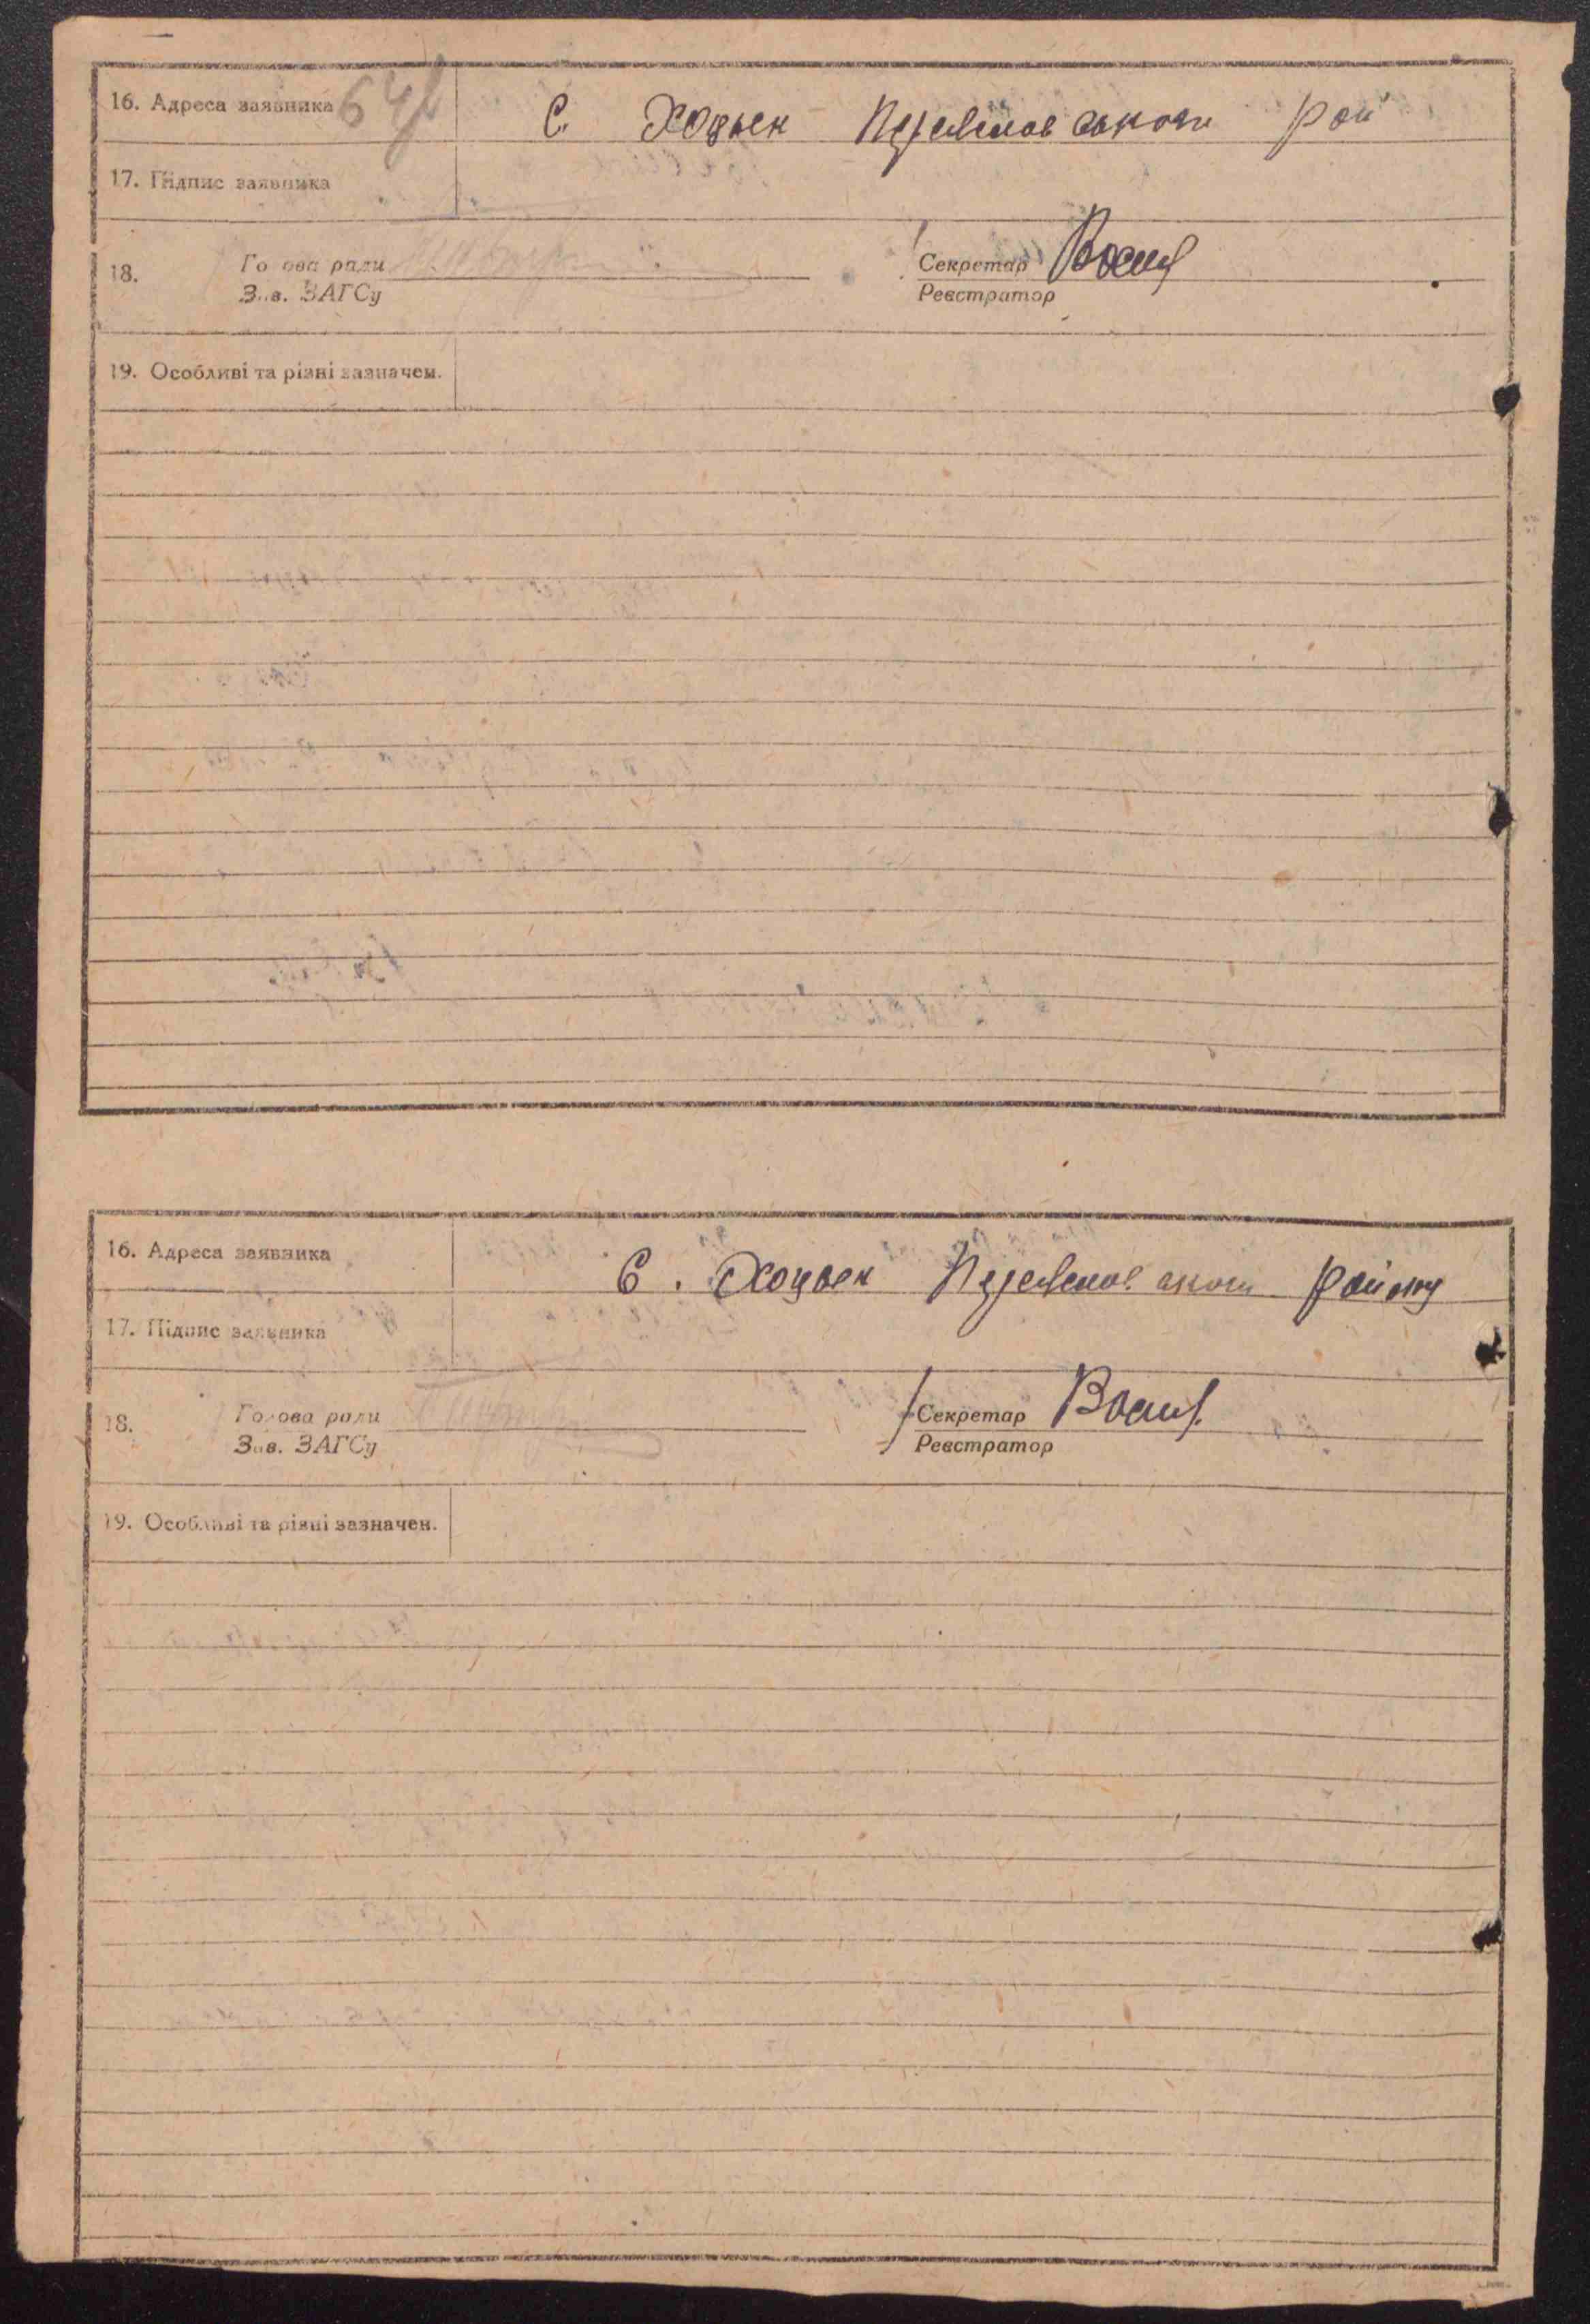 16. Адреса заявника 64 с. Хоцьек Переяслав ського рай
17. Підпис заявника
18. Голова ради Секретар
Зав. ЗАГСу Реєстратор
19. Особливі та різні зазначен.
16. Адреса заявника С. Хоцьек Переяслав ського району
17. Підпис заявника
18. Голова ради Секретар
Зав. ЗАГСу Реєстратор
19. Особливі та різні зазначен.